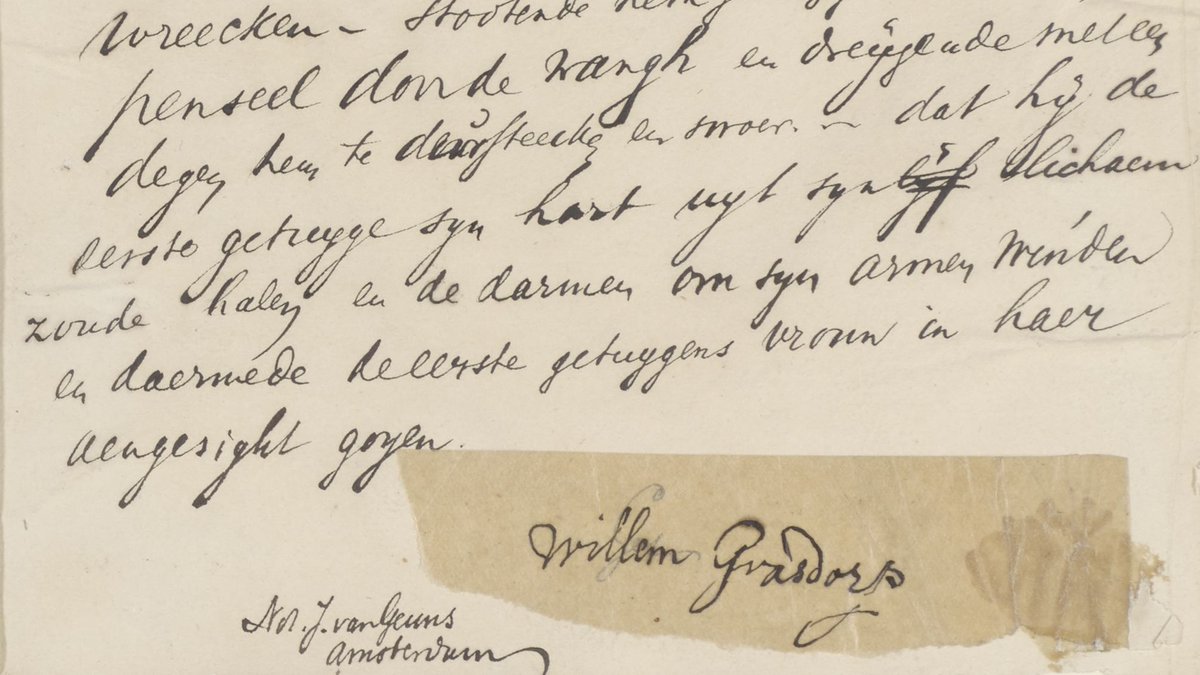 wreecken - stootende
penseel door de wangh en dreijgende met een
degen hem te deursteecke en swoer - dat hij de
eerste getuyge syn hart uyt syn lijf lichaem
zoude halen en de darmen om syn armen winden
en daermede de eerste getuygens vrouw in haer
aengesight goyen.
Willem Grasdorp
Not. J. van Geuns
Amsterdam